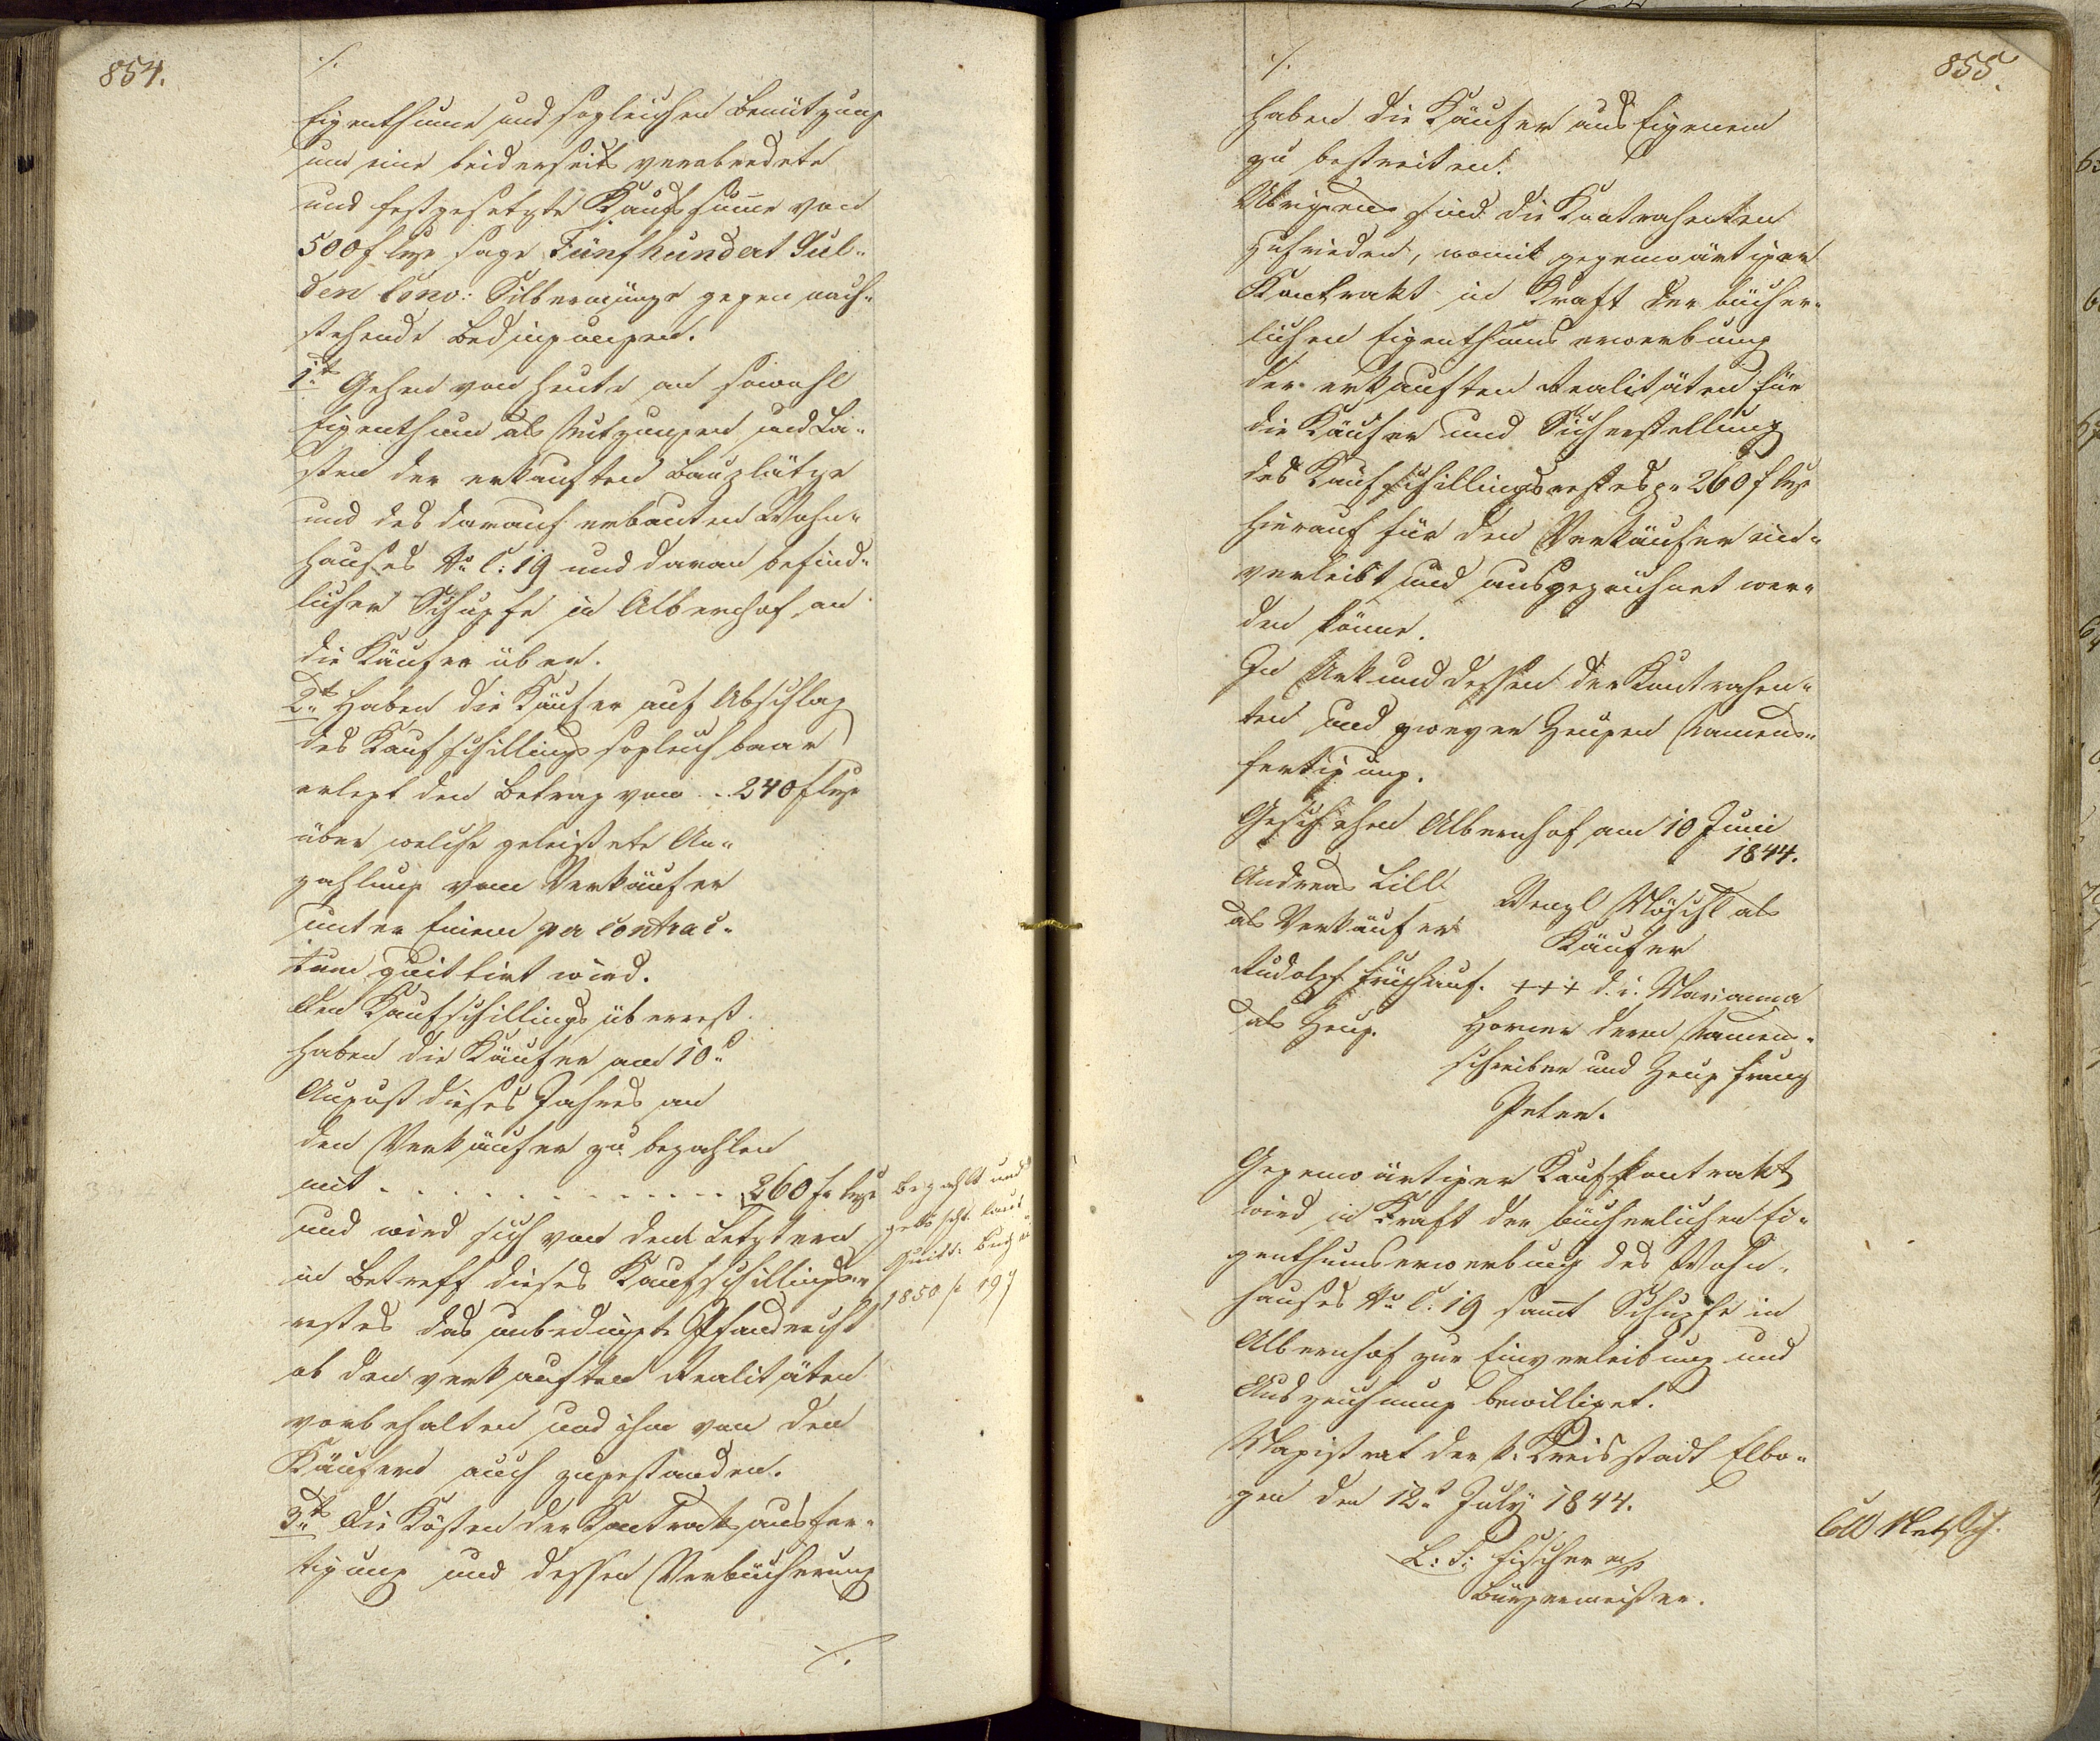 854.
./.
Eigenthume und sogleichen Benützung
um eine beiderseits verabredete
und festgesetzte Kaufsumme von
500 f CMze sage Fünfhundert Gul-
den Conv: Silbermünze gegen nach-
stehende Bedingungen.
1tns Gehen von heute an sowohl
Eigenthum als Nutzungen und La-
sten der erkauften Bauplätze
und des darauf erbauten Wohn-
hauses No C: 19 und daran befind-
licher Schupfe in Albernhof an
die Käufer über.
2tns Haben die Käufer auf Abschlag
des Kaufschillings sogleich baar
erlegt den Betrag von .. 240 f CMze
über welche geleistete An-
zahlung vom Verkäufer
unter Einem per contrac-
tum quittirt wird.
Den Kaufschillingsüberrest
haben die Käufer am 10n
August dieses Jahres an
den Verkäufer zu bezahlen
mit . . . . . . . . . . . . . 260 f CMze
und wird sich von dem Letztern
in Betreff dieses Kaufschillings-
restes das unbedingte Pfandrecht
ob den verkauften Realitäten
vorbehalten und ihm von den
Käufern auch zugestanden.
3tns Die Kösten der Kontraktsausfer-
tigung und dessen Verbücherung
./.
bezahlt und
gelöscht laut
Quitt: Buch
1850 p 197
855.
./.
haben die Käufer aus Eigenem
zu bestreiten.
Übrigens sind die Kontrahenten
zufrieden, womit gegenwärtiger
Kontrakt in Kraft der bücher-
lichen Eigenthumserwerbung
der erkauften Realitäten für
die Käufer und Sicherstellung
des Kaufschillingsrestes pr 260 f CMze
hierauf für den Verkäufer ein-
verleibt und ausgezeichnet wer-
den könne.
In Urkund dessen der Kontrahen-
ten und zweyer Zeugen Namens-
fertigung.
Geschehen Albernhof am 10 Juni
1844.
Andreas Lill
als Verkäufer
Wenzl Möschl als
Käufer
Rudolph Frühauf.
als Zeug.
+++ d. i. Marianna
Horner deren Namen-
schreiber und Zeug Franz
Peter.
Gegenwärtiger Kaufkontrakt
wird in Kraft der bücherlichen Ei-
genthumserwerbung des Wohn-
hauses No C. 19 sammt Schupfe in
Albernhof zur Einverleibung und
Auszeichnung bewilliget.
Magistrat der k. Kreisstadt Elbo-
gen den 12n July 1844.
L: S: Fischer mp
Bürgermeister.